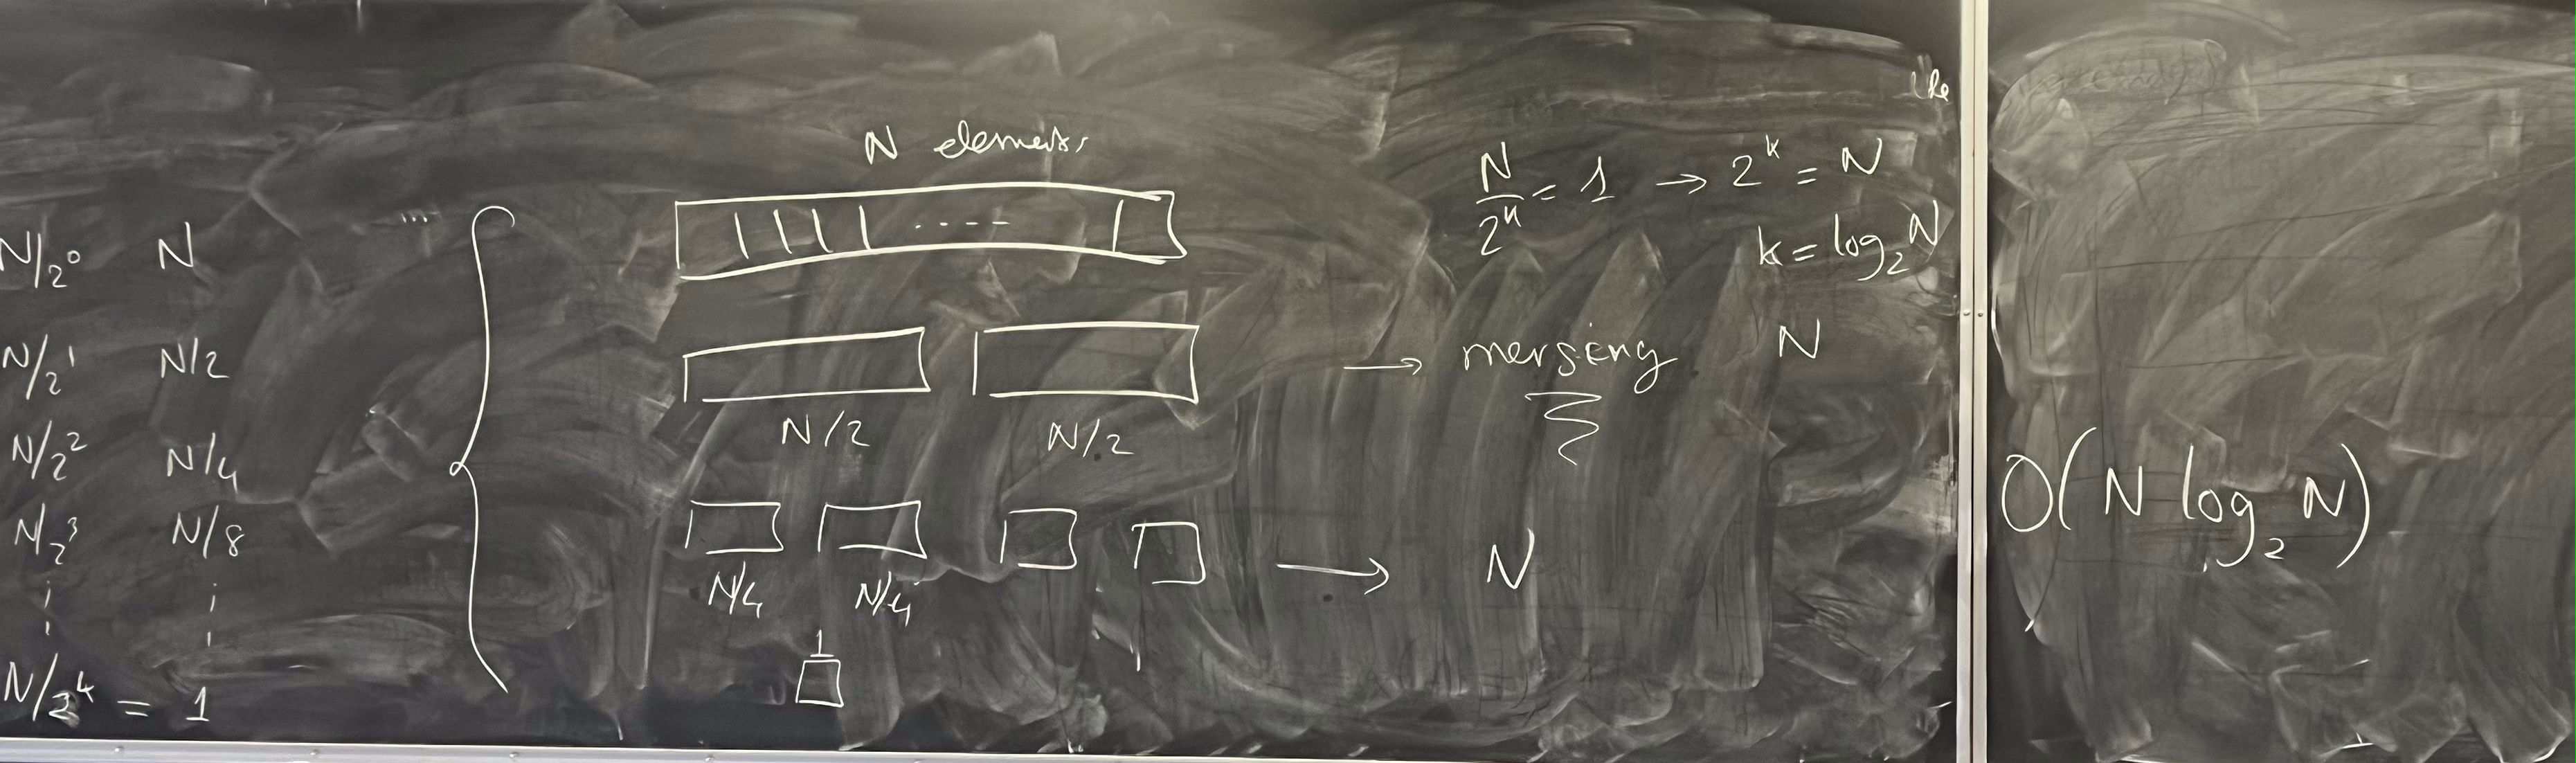 N elements
N/2⁰ N
N/2¹ N/2
N/2² N/4
N/2³ N/8
N/2ᵏ = 1
N/2 N/2
N/4 N/4
1
N/2ᵏ = 1 → 2ᵏ = N
k = log₂ N
→ merging N
→ N
O(N log₂ N)